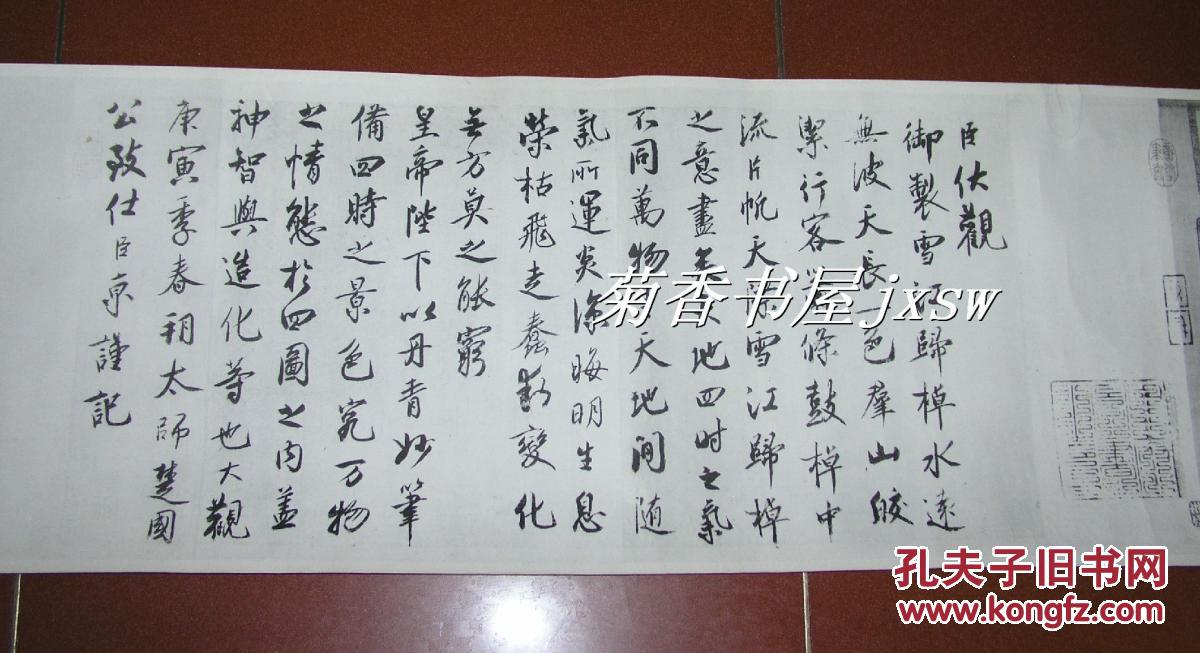 臣伏觀
御製雪江歸棹水遠
無波天長一色群山皎
潔行客蕭條鼓棹中
流片帆天際雪江歸棹
之意盡矣天地四時之氣
不同萬物生天地間隨
氣所運炎涼晦明生息
榮枯飛走蠢動變化
無方莫之能窮
皇帝陛下以丹青妙筆
備四時之景色究万物
之情態於四圖之內蓋
神智與造化等也大觀
庚寅季春朔太師楚國
公致仕臣京謹記
菊香书屋jxsw
孔夫子旧书网
www.kongfz.com